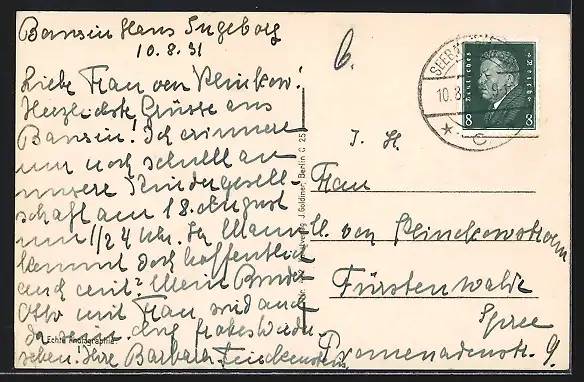 Bansin Haus Ingeborg
10.8.31
Liebe Frau von Klinckow!
Herzlichste Grüsse aus
Bansin! Ich erinnere
nur noch schnell an
unsere Kindergesell-
schaft am 18. August
um 1/2 4 Uhr. Ihr Mann
kommt doch hoffentlich
auch mit? Mein Bruder
Otto mit Frau sind auch
da. ein frohes Wieder-
sehen! Ihre Barbara
Echte Photographie
J. Goldiner, Berlin C 25
6.
SEEBAD
10.8.
C
Deutsches Reich
8 8
I. H.
Frau
von
Fürstenwalde
Spree
Promenadenstr. 9.